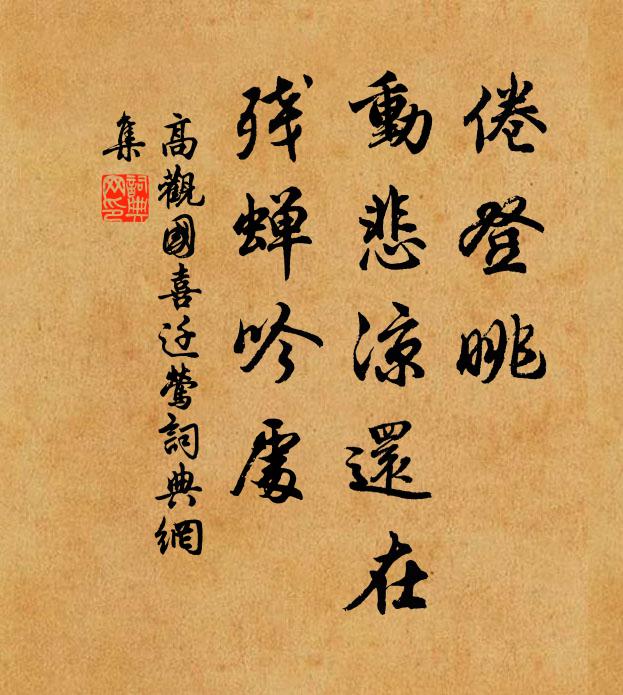 倦登眺
動悲涼還在
残蝉吟處
高觀國喜迁莺詞典網
集
詞典
网印